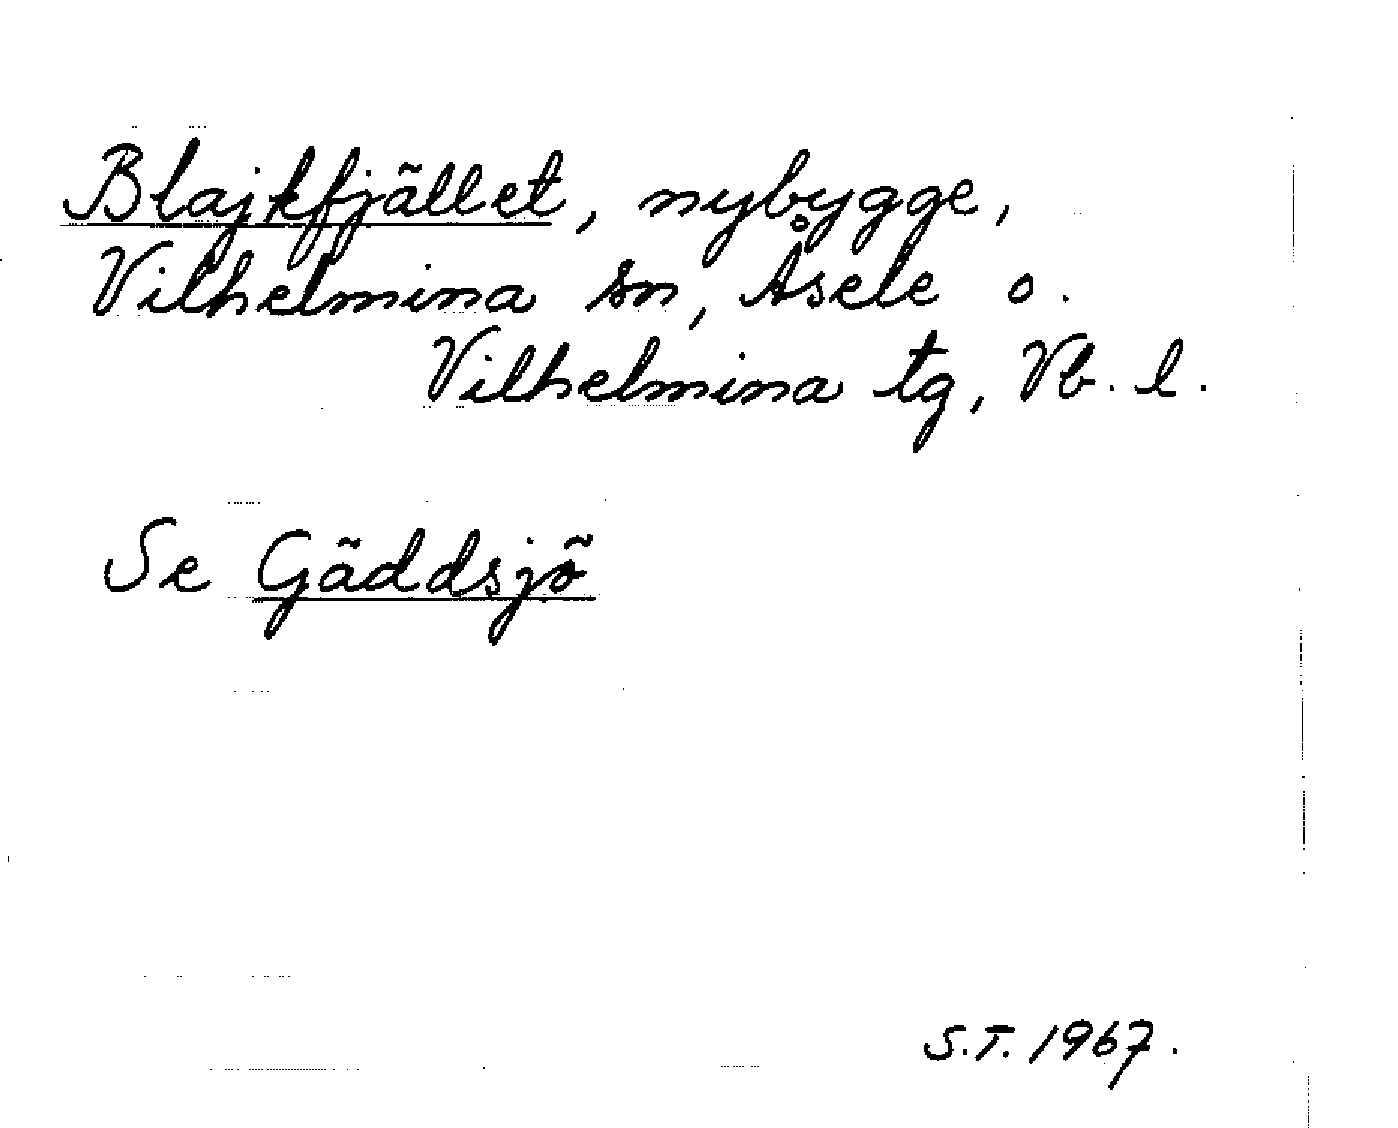 Blajkfjället, nybygge,
Vilhelmina sn, Åsele o.
Vilhelmina tg, Vb. l.
Se Gäddsjö
S.T. 1967.